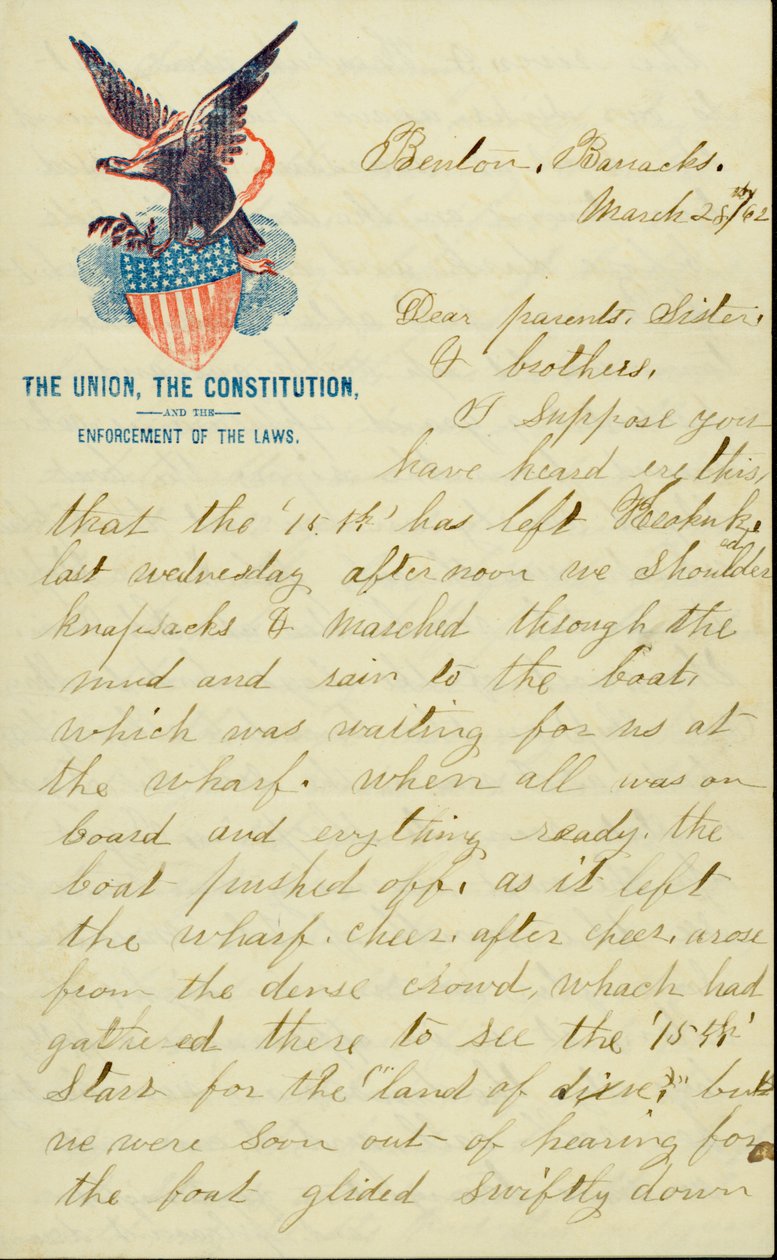 Benton, Barracks.
March 28th/62
THE UNION, THE CONSTITUTION,
AND THE
ENFORCEMENT OF THE LAWS.
Dear parents, Sister,
& brothers,
I Suppose you
have heard ere this,
that the '15th' has left Keokuk.
last wednesday afternoon we Shoulderd
knapsacks & marched through the
mud and rain to the boat,
which was waiting for us at
the wharf. when all was on
board and erything ready. the
boat pushed off. as it left
the wharf. cheer. after cheer. arose
from the dense crowd, whach had
gathered there to see the '15th'
Start for the ("land of dixie,)" but
we were Soon out of hearing for
the boat glided Swiftly down